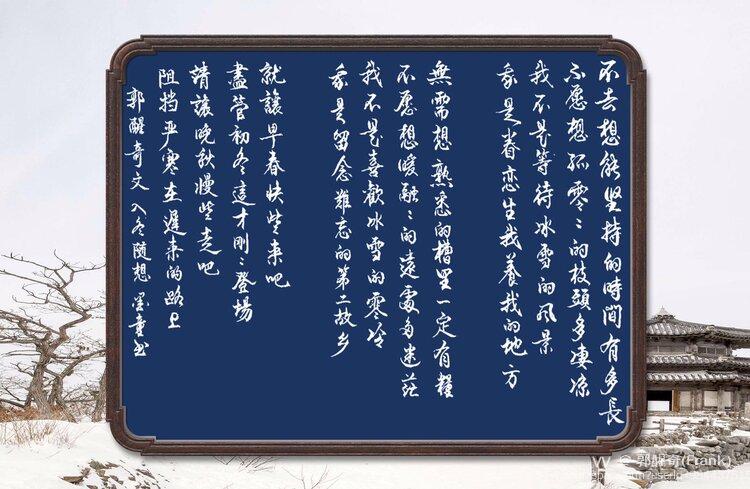 不去想能坚持的時间有多長
不愿想孤零零的枝頭多凄凉
我不是等待冰雪的風景
我是眷恋生我養我的地方
無需想熟悉的槽里一定有糧
不愿想暖融融的遠處多迷茫
我不是喜歡冰雪的寒冷
我是留念難忘的第二故乡
就讓早春快些来吧
盡管初冬這才剛剛登場
請讓晚秋慢些走吧
阻挡严寒在遲来的路上
郭醒奇文 入冬随想 星童书
郭醒奇(Frank)